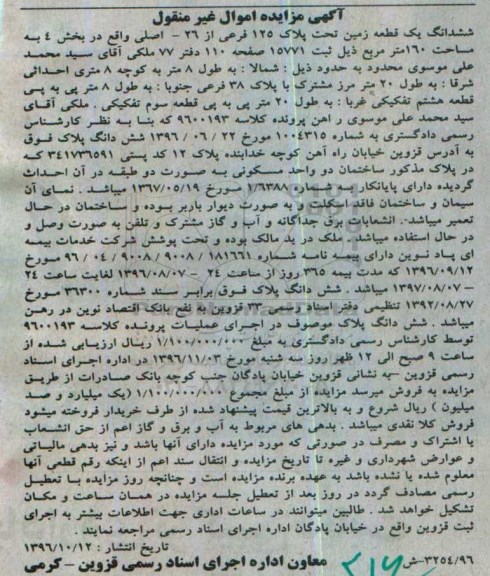 آگهی مزایده اموال غیر منقول
ششدانگ یک قطعه زمین تحت پلاک ۱۲۵ فرعی از ۲۶ - اصلی واقع در بخش ٤ به
مساحت ۱۶۰متر مربع ذیل ثبت ۱۵۷۷۱ صفحه ۱۱۰ دفتر ۷۷ ملکی آقای سید محمد
علی موسوی محدود به حدود ذیل : شمالا : به طول ۸ متر به کوچه ۸ متری احداثی
شرقا : به طول ۲۰ متر مرز مشترک با پلاک ۳۸ فرعی جنوبا : به طول ۸ متر پی به پی
قطعه هشتم تفکیکی غربا : به طول ۲۰ متر پی به پی قطعه سوم تفکیکی . ملکی آقای
سید محمد علی موسوی ر اهن پرونده کلاسه ۹۶۰۰۱۹۳ که بنا به نظر کارشناس
رسمی دادگستری به شماره ۱۰۰٤۳۱۵ مورخ ۲۲ / ۰۶ / ۱۳۹۶ شش دانگ پلاک فوق
به آدرس قزوین خیابان راه آهن کوچه خدابنده پلاک ۱۲ کد پستی ۳٤۱۷۳۶۵۹۱ که
در پلاک مذکور ساختمان دو واحد مسکونی به صورت دو طبقه در آن احداث
گردیده دارای پایانکار به شماره ۱/۶۳۸۸ مورخ ۱۳۶۷/۰۵/۱۹ میباشد . نمای آن
سیمان و ساختمان فاقد اسکلت و به صورت دیوار باربر بوده و ساختمان در حال
تعمیر میباشد. انشعابات برق جداگانه و آب و گاز مشترک و تلفن به صورت وصل و
در حال استفاده میباشد. ملک در ید مالک بوده و تحت پوشش شرکت خدمات بیمه
ای پاد نوین دارای بیمه نامه شماره ۱۸۱۶۶۱ / ۹۰۰۸ / ۹۰۰۸ / ۰٤ / ۹۶ مورخ
۱۳۹۶/۰۹/۱۲ که مدت بیمه ۳۶۵ روز از ساعت ۲٤ - ۱۳۹۶/۰۸/۰۷ لغایت ساعت ۲٤
- ۱۳۹۷/۰۸/۰۷ میباشد . شش دانگ پلاک فوق برابر سند شماره ۳۶۳۰۰ مورخ
۱۳۹۲/۰۸/۲۷ تنظیمی دفتر اسناد رسمی ۳۳ قزوین به نفع بانک اقتصاد نوین در رهن
میباشد . شش دانگ پلاک موصوف در اجرای عملیات پرونده کلاسه ۹۶۰۰۱۹۳
توسط کارشناس رسمی دادگستری به مبلغ ۱/۱۰۰/۰۰۰/۰۰۰ ریال ارزیابی شده از
ساعت ۹ صبح الی ۱۲ ظهر روز سه شنبه مورخ ۱۳۹۶/۱۱/۰۳ در اداره اجرای اسناد
رسمی قزوین –به نشانی قزوین خیابان پادگان جنب کوچه بانک صادرات از طریق
مزایده به فروش میرسد مزایده از مبلغ مجموع ۱/۱۰۰/۰۰۰/۰۰۰ (یک میلیارد و صد
میلیون ) ریال شروع و به بالاترین قیمت پیشنهاد شده از طرف خریدار فروخته میشود
فروش کلا نقدی میباشد . بدهی های مربوط به آب و برق و گاز اعم از حق انشعاب
یا اشتراک و مصرف در صورتی که مورد مزایده دارای آنها باشد و نیز بدهی مالیاتی
و عوارض شهرداری و غیره تا تاریخ مزایده و انتقال سند اعم از اینکه رقم قطعی آنها
معلوم شده یا نشده باشد به عهده برنده مزایده است و چنانچه روز مزایده با تعطیل
رسمی مصادف گردد در روز بعد از تعطیل جلسه مزایده در همان ساعت و مکان
تشکیل خواهد شد . طالبین میتوانند در ساعات اداری جهت اطلاعات بیشتر به اجرای
ثبت قزوین واقع در خیابان پادگان اداره اجرای اسناد رسمی مراجعه نمایند .
تاریخ انتشار : ۱۳۹۶/۱۰/۱۲
۳۲۵٤/۹۶–ش معاون اداره اجرای اسناد رسمی قزوین – کرمی